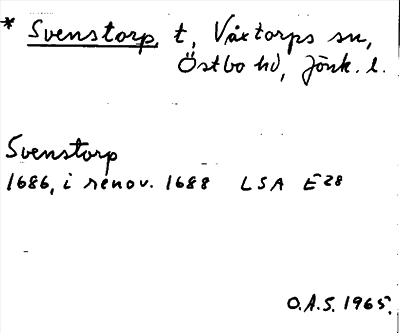 * Svenstorp t, Våxtorps sn,
Östbo hd, Jönk. l.
Svenstorp
1686, i renov. 1688 LSA E28
O.A.S. 1965.